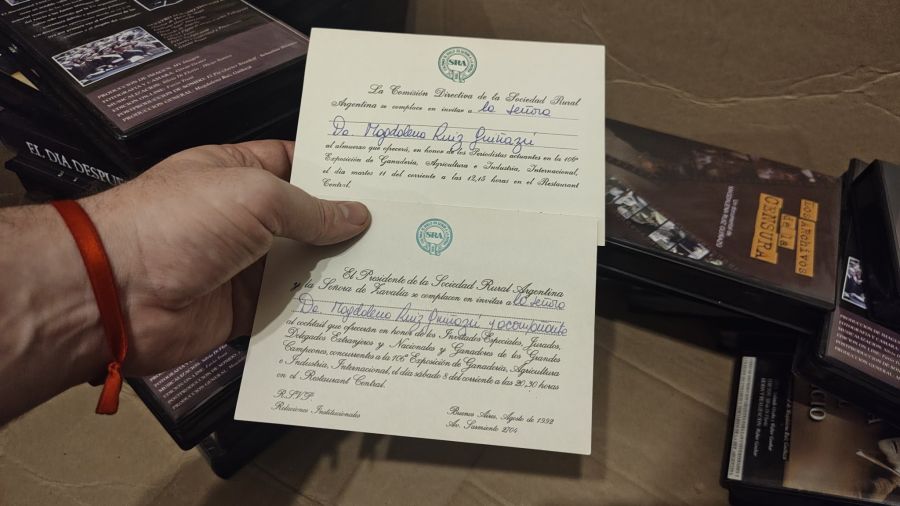 SRA
La Comisión Directiva de la Sociedad Rural
Argentina se complace en invitar a la señora
Da. Magdalena Ruiz Guiñazú
al almuerzo que ofrecerá, en honor de los Periodistas actuantes en la 106ª
Exposición de Ganadería, Agricultura e Industria, Internacional,
el día martes 11 del corriente a las 12,15 horas en el Restaurant
Central.
SRA
El Presidente de la Sociedad Rural Argentina
y la Señora de Zavalía se complacen en invitar a la señora
Da. Magdalena Ruiz Guiñazú y acompañante
al cocktail que ofrecerán en honor de los Invitados Especiales, Jurados,
Delegados Extranjeros y Nacionales y Ganaderos de los Grandes
Campeones, concurrentes a la 106ª Exposición de Ganadería, Agricultura
e Industria, Internacional, el día sábado 8 del corriente a las 20,30 horas
en el Restaurant Central.
R.S.V.P.
Relaciones Institucionales
Buenos Aires, Agosto de 1992
Av. Sarmiento 2704
EL DIA DESPUE
LOS ARCHIVOS
de la
CENSURA
MAGDALENA RUIZ GUIÑAZU